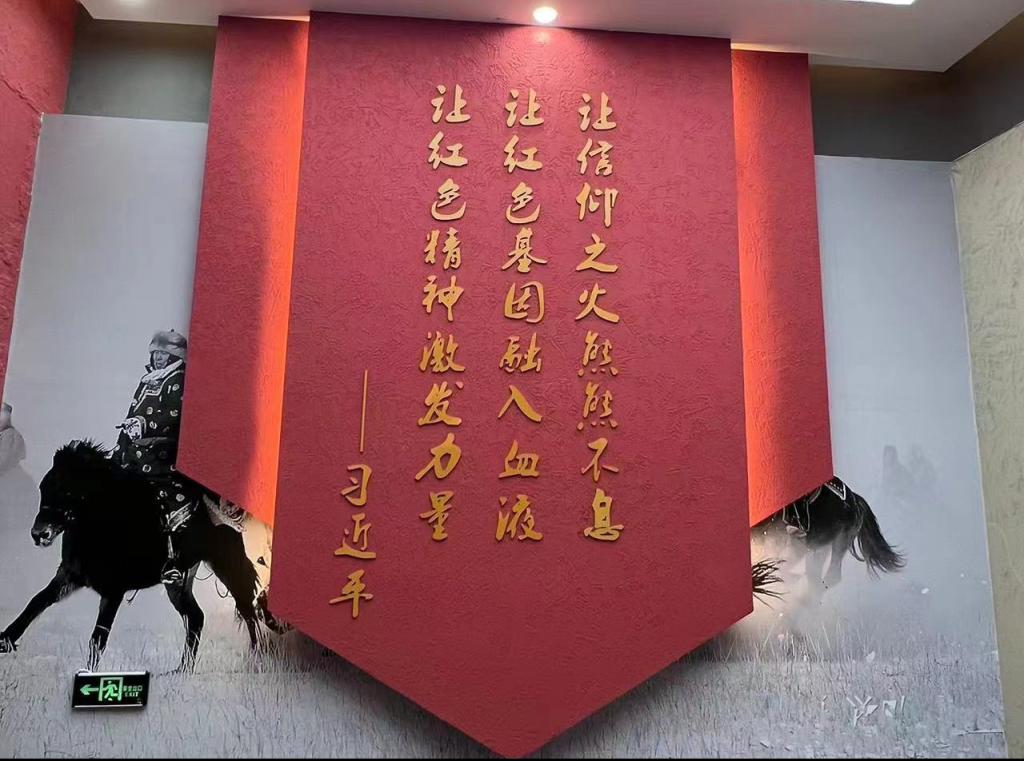 让信仰之火熊熊不息
让红色基因融入血液
让红色精神激发力量
——习近平
安全出口
EXIT